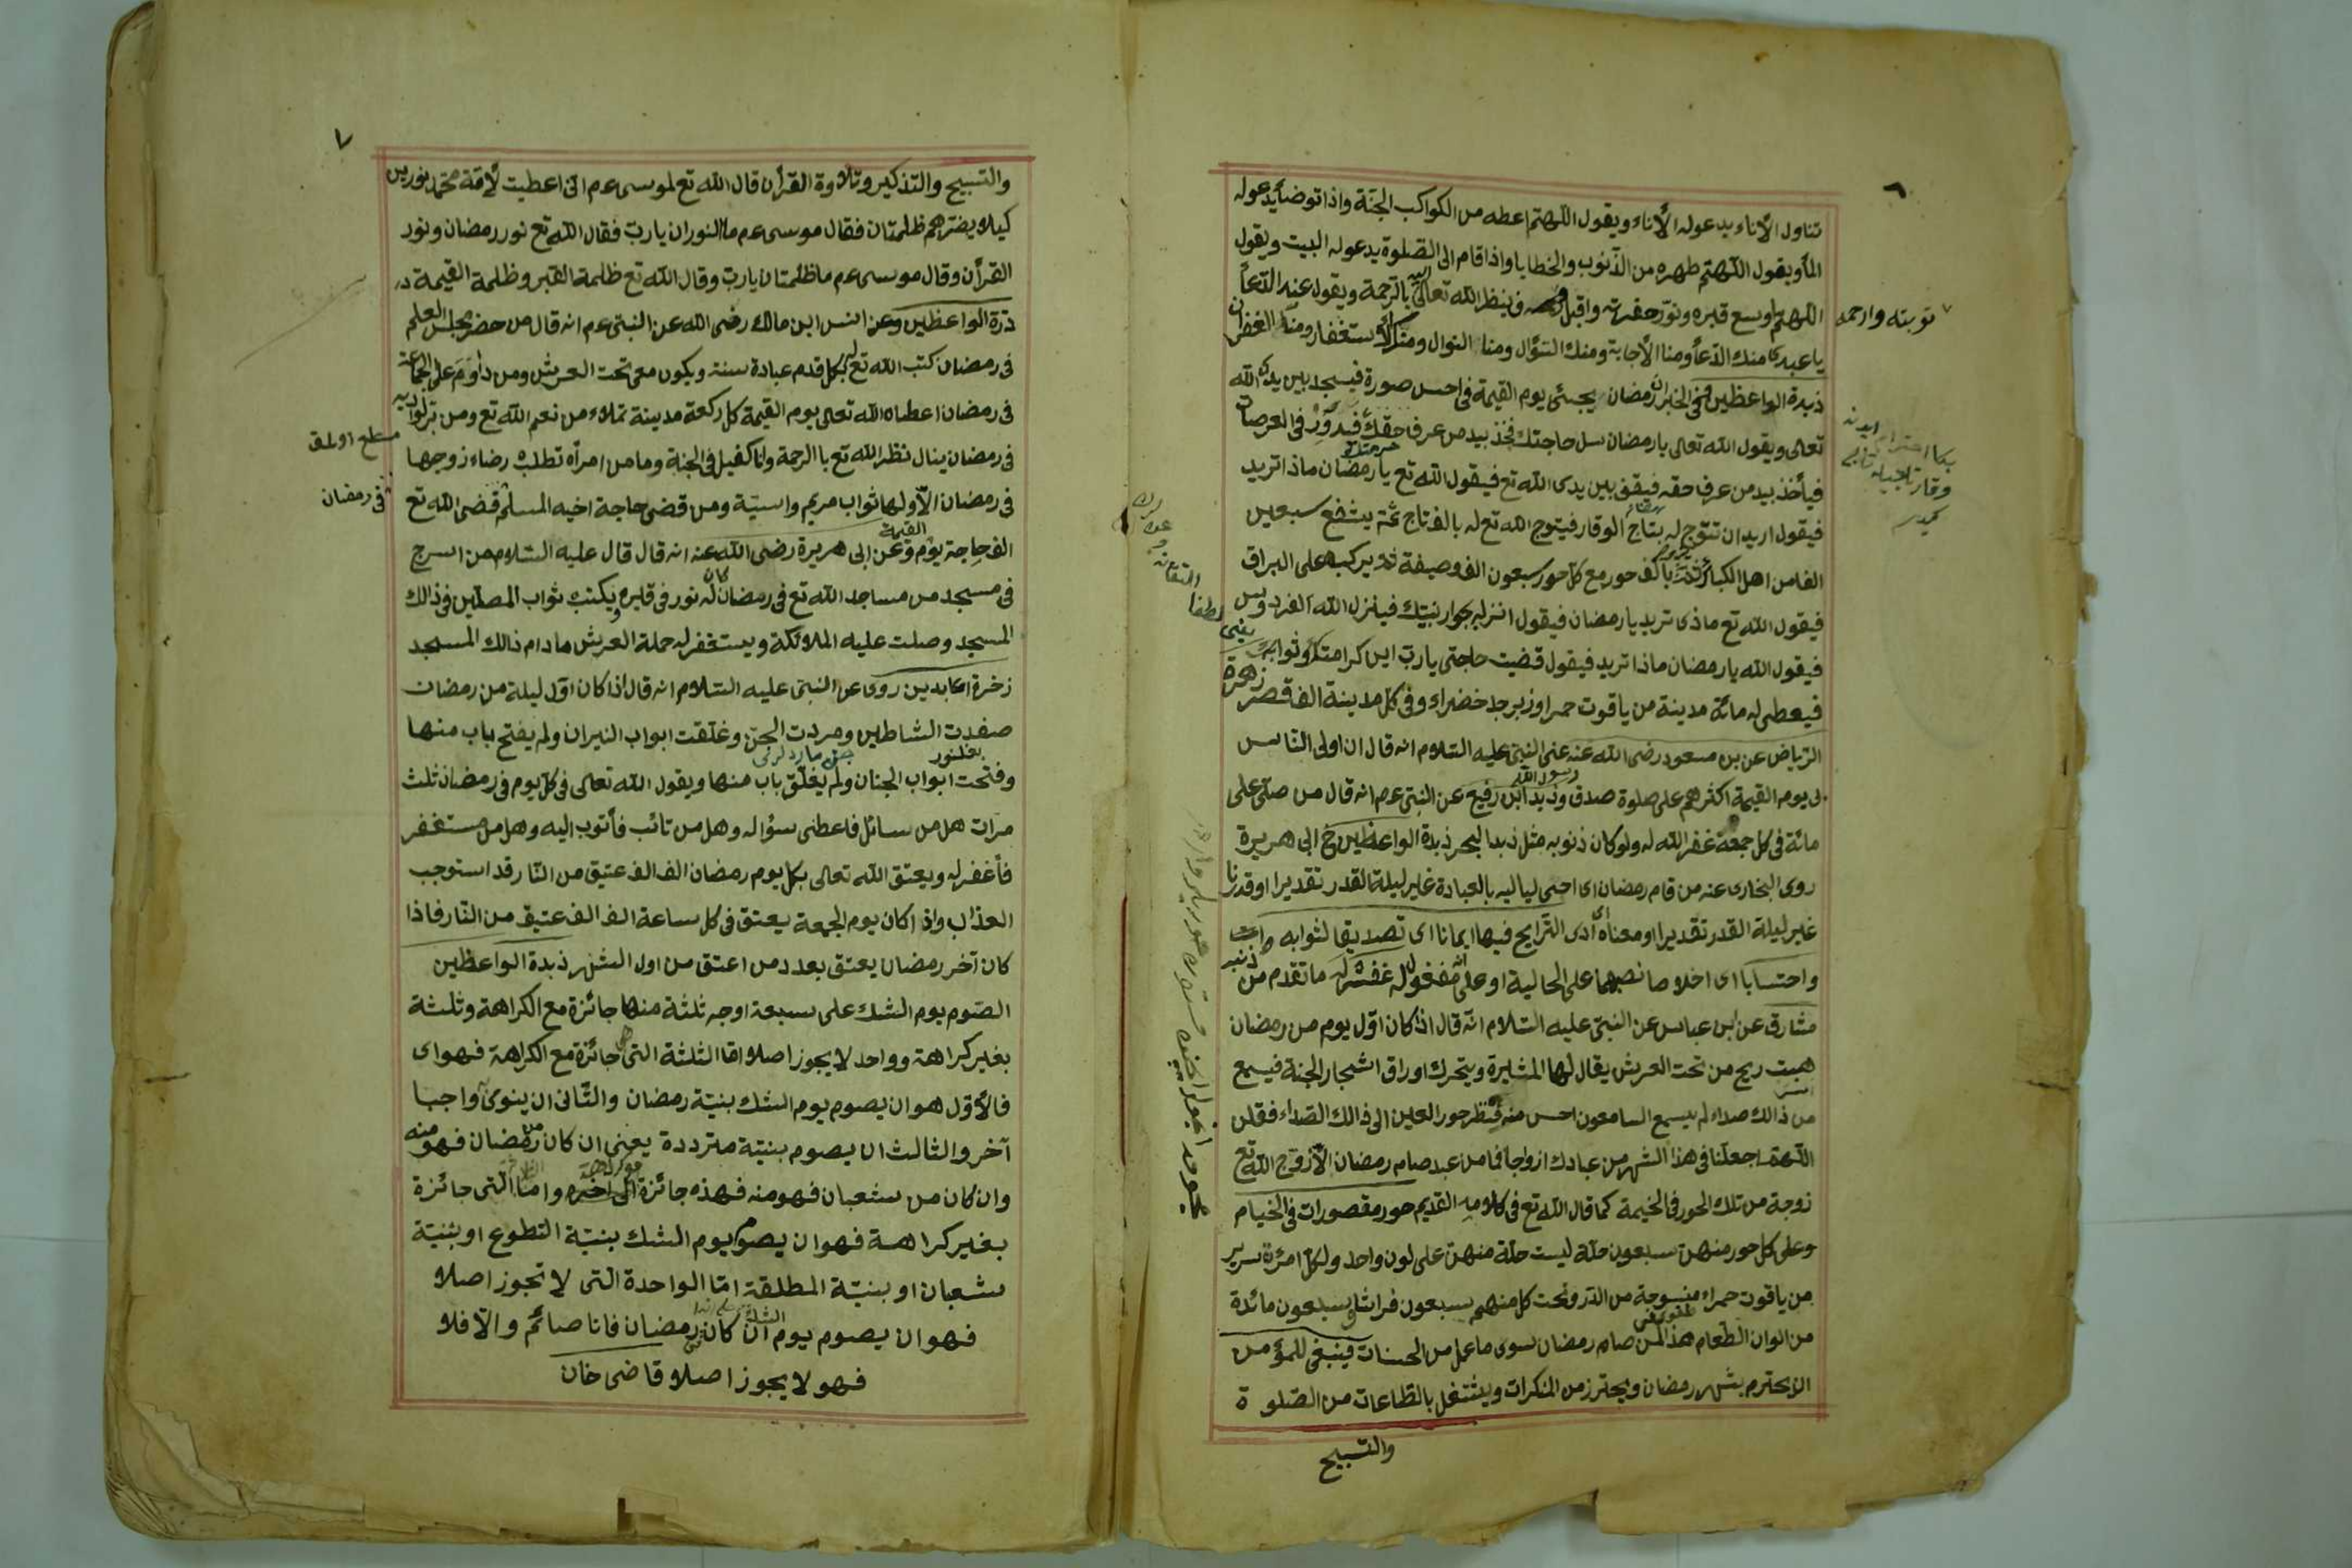 ٦
تناول الأناء يدعوله الأناء ويقول اللهم اعطه من الكواكب الجنة واذا توضأ يدعوله
المأ ويقول اللهم طهره من الذنوب والخطايا واذا قام الى الصلوة يدعوله البيت ويقول
اللهم اوسع قبره ونور حفرته وينظر الله تعالى اليه بالرحمة ويقول عند الدعأ
يا عبدى منك الدعأ ومنا الأجابة ومنك السؤال ومنا النوال ومنك الأستغفار ومنا الغفران
زبدة الواعظين وفى الخبر ان رمضان يجئى يوم القيمة فى احسن صورة فيسجد بين يدى الله
تعالى ويقول الله تعالى يا رمضان سل حاجتك فخذ بيد من عرف حقك فيدور فى العرصات
فيأخذ بيد من عرف حقه فيقف بين يدى الله تع فيقول الله تع يا رمضان ماذا تريد
فيقول اريد ان تتوج له بتاج الوقار فيتوج الله تع له بالف تاج ثمة يشفع سبعين
الفا من اهل الكبائر بالف حور مع كل حور سبعون الف وصيفة ثم يركبه على البراق
فيقول الله تع ماذى تريد يا رمضان فيقول انزله بجوار نبيك فينزل الله الفردوس
فيقول الله يا رمضان ماذا تريد فيقول قضيت حاجتى يا رب اين كرامتك وثوابك
فيعطى له مائة مدينة من ياقوت حمرا وزبرجد خضراء وفى كل مدينة الف قصر زهرة
الرياض عن بن مسعود رضى الله عنه عنى النبى عليه السلام انه قال ان اولى الناس
لى يوم القيمة اكثرهم على صلوة صدق وزيد ابن رفيع عن النبى عم انه قال من صلى على
مائة فى كل جمعة غفر الله له ولو كان ذنوبه مثل زبد البحر زبدة الواعظين خ ابى هريرة
روى البخارى عنه من قام رمضان اى احيى لياليه بالعبادة غير ليلة القدر تقديرا او قدرنا
غير ليلة القدر تقديرا او معناه ادى التراويح فيها ايمانا اى تصديقا لثوابه
واحتسابا اى اخلاصا نصبهما على الحالية او على انه مفعول له غفر له ما تقدم من ذنبه
مشارق عن ابن عباس عن النبى عليه السلام انه قال اذا كان اول يوم من رمضان
هبت ريح من تحت العرش يقال لها المثيرة ويتحرك اوراق اشجار الجنة فيسمع
من ذالك صداء لم يسمع السامعون احسن منه فينظر حور العين الى ذالك الصداء فقلن
اللهم اجعلنا فى هذا الشهر من عبادك ازواجا فما من عبد صام رمضان الا زوج الله تع
زوجة من تلك الحور فى الخيمة كما قال الله تع فى كلامه القديم حور مقصورات فى الخيام
وعلى كل حور منهن سبعون حلة ليست حلة منهن على لون واحد ولكل امرئة سرير
من ياقوت حمراء منسوجة من الدر وتحت كل منهم سبعون فراشا وسبعون مائدة
من الوان الطعام هذا لمن صام رمضان سوى ما عمل من الحسنات فينبغى للمؤمن
ان يحترم بشهر رمضان ويحترز من المنكرات ويشتغل بالطاعات من الصلوة
والتسبيح
توبته وارحمه
٧
والتسبيح والتذكير وتلاوة القرأن قال الله تع لموسى عم انى اعطيت لأمة محمد نورين
كيلا يضرهم ظلمتان فقال موسى عم ما النوران يا رب فقال الله تع نور رمضان ونور
القرأن وقال موسى عم ما ظلمتان يا رب وقال الله تع ظلمة القبر وظلمة القيمة
درة الواعظين وعن انس ابن مالك رضى الله عن النبى عم انه قال من حضر مجلس العلم
فى رمضان كتب الله تع له بكل قدم عبادة سنة ويكون معى تحت العرش ومن داوم على الجماعة
فى رمضان اعطاه الله تعالى يوم القيمة كل ركعة مدينة تملاء من نعم الله تع ومن بر لوالديه
فى رمضان ينال نظر الله تع با الرحمة وانا كفيل فى الجنة وما من امرأه تطلب رضاء زوجها
فى رمضان الا ولها ثواب مريم واسية ومن قضى حاجة اخيه المسلم قضى الله تع
فى رمضان
الف حاجة يوم القيمة وعن ابى هريرة رضى الله عنه انه قال قال عليه السلام من اسرج
فى مسجد من مساجد الله تع فى رمضان كان له نور فى قبره ويكتب ثواب المصلين فى ذالك
المسجد وصلت عليه الملائكة ويستغفر له حملة العرش ما دام ذالك المسجد
زخرة العابدين روى عن النبى عليه السلام انه قال اذا كان اول ليلة من رمضان
صفدت الشاطين ومردت الجن وغلقت ابواب النيران ولم يفتح باب منها
وفتحت ابواب الجنان ولم يغلق باب منها ويقول الله تعالى فى كل يوم فى رمضان ثلث
مرات هل من سائل فاعطى سؤاله وهل من تائب فأتوب اليه وهل من مستغفر
فأغفر له ويعتق الله تعالى بكل يوم رمضان الف الف عتيق من النار قد استوجب
العذاب واذا كان يوم الجمعة يعتق فى كل ساعة الف الف عتيق من النار فاذا
كان آخر رمضان يعتق بعدد من اعتق من اول الشهر زبدة الواعظين
الصوم يوم الشك على سبعة اوجه ثلثة منها جائزة مع الكراهة وثلثة
بغير كراهة وواحد لا يجوز اصلا اما الثلثة التى هى جائزة مع الكراهة فهو اى
فالأول هو ان يصوم يوم الشك بنية رمضان والثانى ان ينوى واجبا
آخر والثالث ان يصوم بنية مترددة يعنى ان كان من رمضان فهو منه
وان كان من شعبان فهو منه فهذه جائزة واما التى جائزة
بغير كراهة فهو ان يصوم يوم الشك بنية التطوع او بنية
شعبان او بنية المطلقة اما الواحدة التى لا تجوز اصلا
فهو ان يصوم يوم الشك ان كان رمضان فانا صائم والا فلا
فهو لا يجوز اصلا قاضى خان